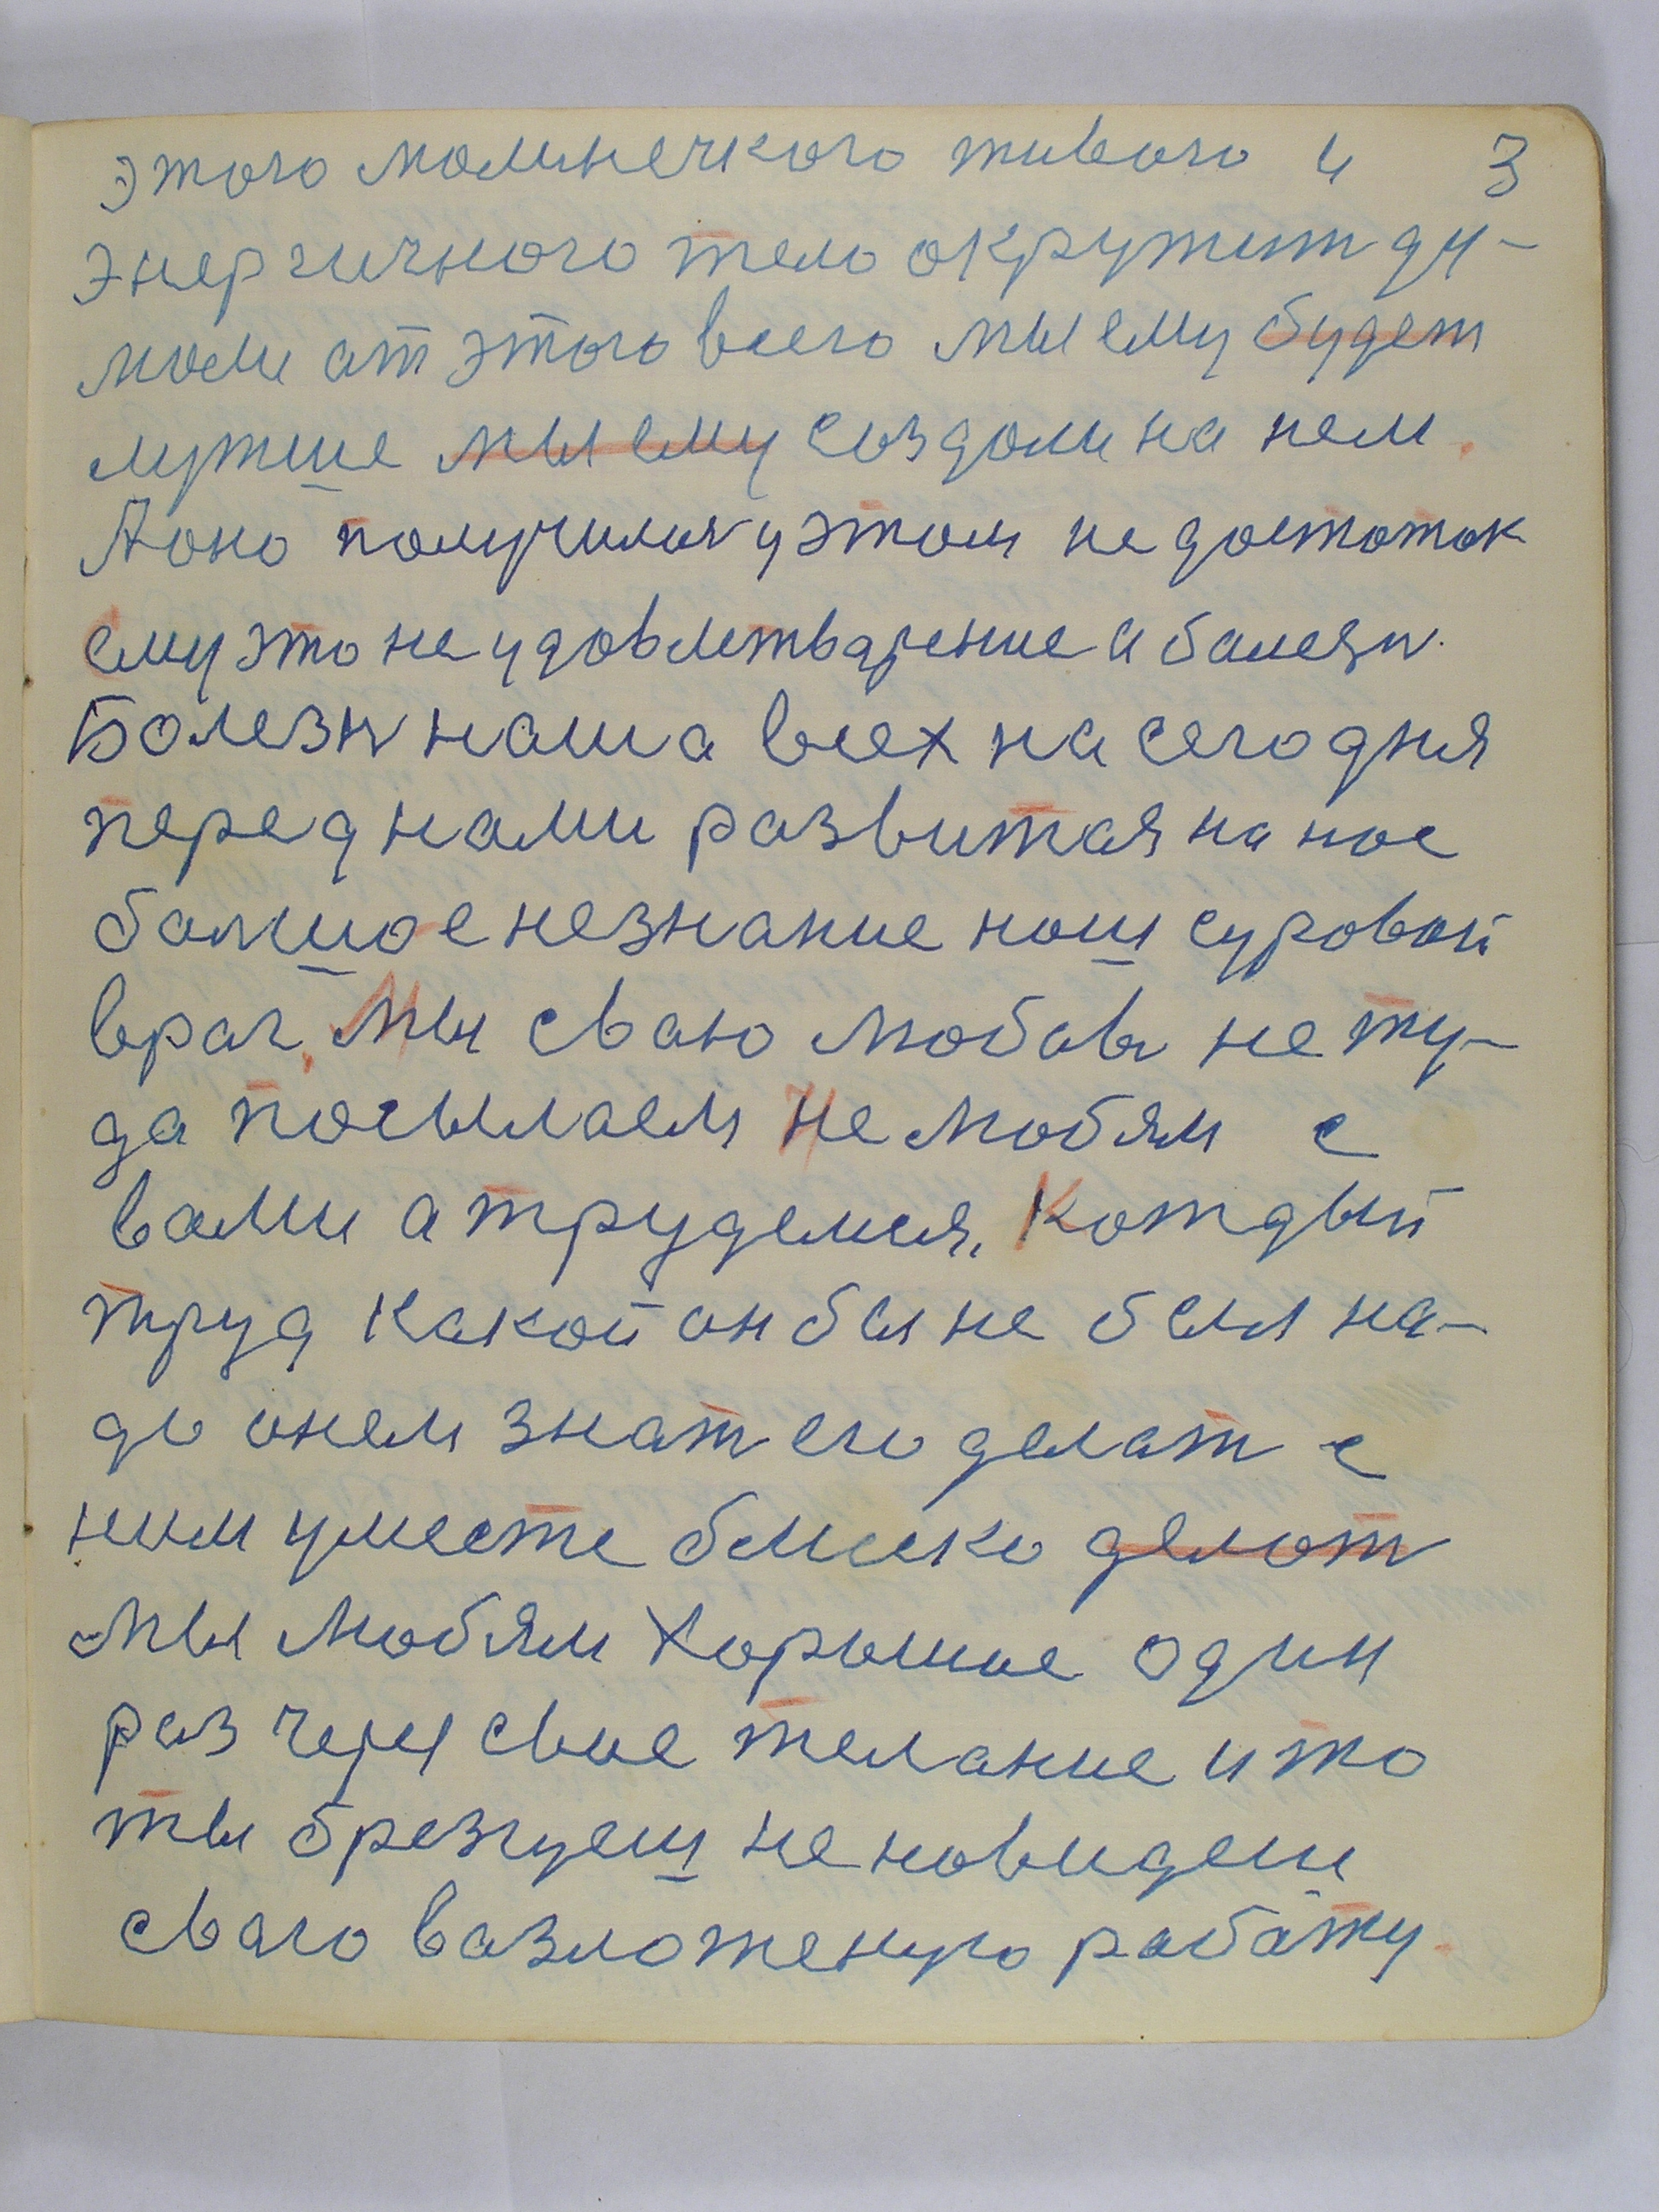 этого молинечкого живого и 3
энергичного тело окружит ду-
моли ат этого всего мы ему будет
лутше мы ему создоли на нем.
А оно получилося у этом не достоток
ему это не удовлетварение и балезн.
Болезн наша всех на сегодня
перед нами развитая на ное
балшое незнание наш суровой
враг. Мы сваю любов не ту-
да посылаем Не любям с
вами а трудемся. Кождый
труд какой он бы не был на-
до онем знат его делат с
ним уместе блиско делот
мы любям хорошое один
раз через свое желание и то
ты брезгуеш не новидеш
сваго вазложеную работу.